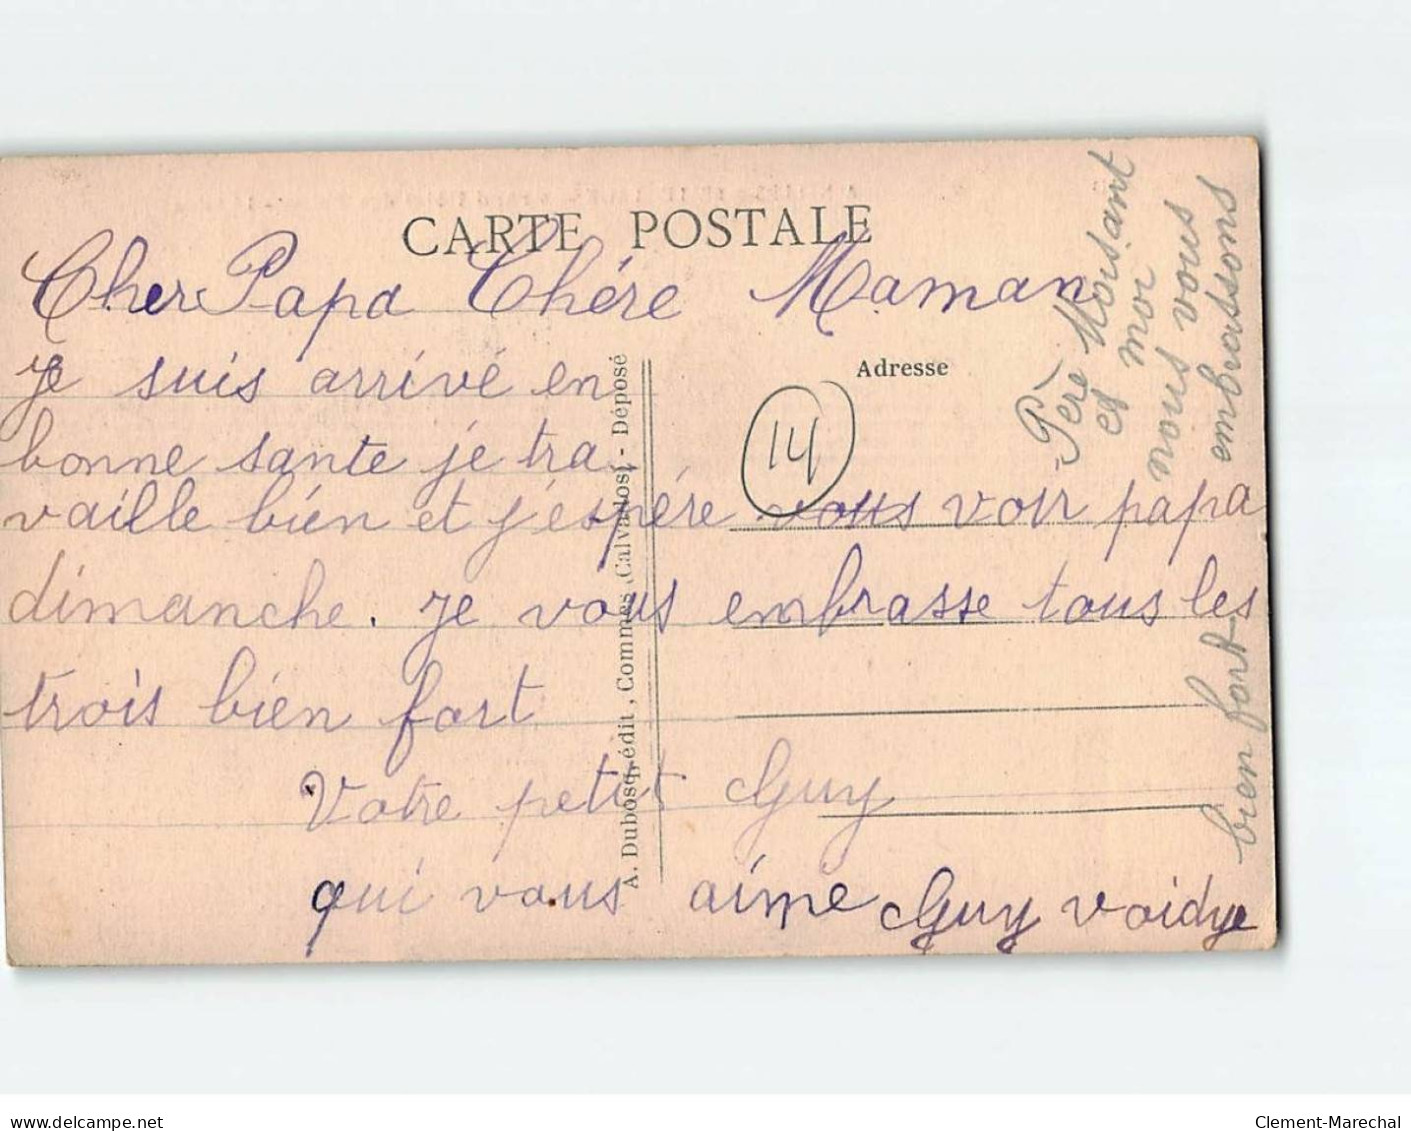 CARTE POSTALE
Cher Papa Chére Maman
je suis arrivé en
bonne sante je tra
vaille bien et j'éspére vous voir papa
dimanche. je vous embrasse tous les
trois bien fort
Votre petit Guy
qui vous aime Guy Voidye
Adresse
14
A. Dubosq, édit, Commes (Calvados) - Déposé
Père Moisant
et moi
nous vous
embrassons
bien fort
www.delcampe.net
Clement-Marechal